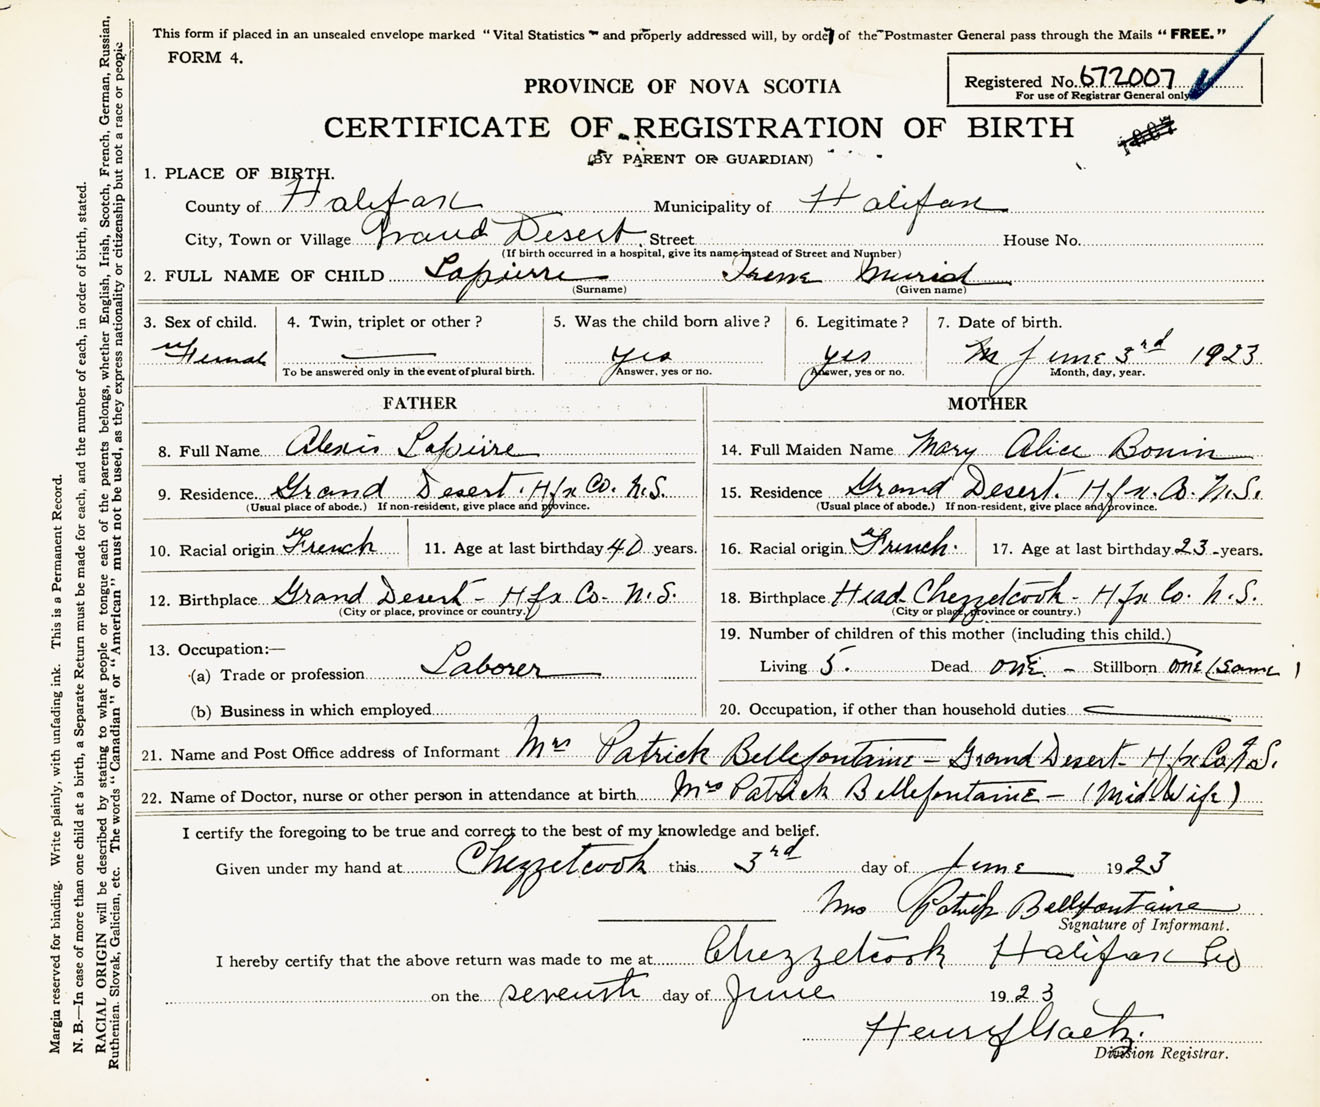 This form if placed in an unsealed envelope marked "Vital Statistics" and properly addressed will, by order of the Postmaster General pass through the Mails "FREE."
FORM 4.
Registered No. 672007
For use of Registrar General only
PROVINCE OF NOVA SCOTIA
CERTIFICATE OF REGISTRATION OF BIRTH
(BY PARENT OR GUARDIAN)
1. PLACE OF BIRTH.
County of Halifax Municipality of Halifax
City, Town or Village Grand Desert Street House No.
(If birth occurred in a hospital, give its name instead of Street and Number)
2. FULL NAME OF CHILD Lapierre Irene Muriel
(Surname) (Given name)
3. Sex of child. 4. Twin, triplet or other? 5. Was the child born alive? 6. Legitimate? 7. Date of birth.
Female Yes yes June 3rd 1923
To be answered only in the event of plural birth. Answer, yes or no. Answer, yes or no. Month, day, year.
FATHER
8. Full Name Alexis Lapierre
9. Residence Grand Desert. Hfx Co. N.S.
(Usual place of abode.) If non-resident, give place and province.
10. Racial origin French 11. Age at last birthday 40 years.
12. Birthplace Grand Desert - Hfx Co- N.S.
(City or place, province or country.)
13. Occupation:—
(a) Trade or profession Laborer
(b) Business in which employed
MOTHER
14. Full Maiden Name Mary Alice Bonin
15. Residence Grand Desert. Hfx. Co. N.S.
(Usual place of abode.) If non-resident, give place and province.
16. Racial origin French. 17. Age at last birthday 23 years.
18. Birthplace Head Chezzetcook - Hfx Co. N.S.
(City or place, province or country.)
19. Number of children of this mother (including this child.)
Living 5. Dead one - Stillborn one (same)
20. Occupation, if other than household duties
21. Name and Post Office address of Informant Mrs Patrick Bellefontaine - Grand Desert - Hfx Co N.S.
22. Name of Doctor, nurse or other person in attendance at birth Mrs Patrick Bellefontaine - (Mid Wife)
I certify the foregoing to be true and correct to the best of my knowledge and belief.
Given under my hand at Chezzetcook this 3rd day of June 1923
Mrs Patrick Bellefontaine
Signature of Informant.
I hereby certify that the above return was made to me at Chezzetcook Halifax Co
on the seventh day of June 1923
Henry Gaetz.
Division Registrar.
Margin reserved for binding. Write plainly, with unfading ink. This is a Permanent Record.
N. B.—In case of more than one child at a birth, a Separate Return must be made for each, and the number of each, in order of birth, stated.
RACIAL ORIGIN will be described by stating to what people or tongue each of the parents belongs, whether English, Irish, Scotch, French, German, Russian,
Ruthenian, Slovak, Galician, etc. The words "Canadian" or "American" must not be used, as they express nationality or citizenship but not a race or people